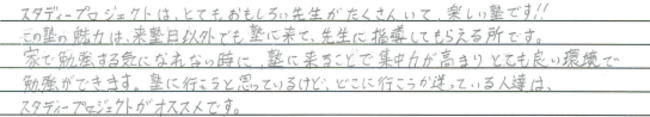 スタディープロジェクトは、とてもおもしろい先生がたくさんいて、楽しい塾です!!
この塾の魅力は、来塾日以外でも塾に来て、先生に指導してもらえる所です。
家で勉強する気になれない時に、塾に来ることで集中力が高まりとても良い環境で
勉強ができます。塾に行こうと思っているけど、どこに行こうか迷っている人達は、
スタディープロジェクトがオススメです。